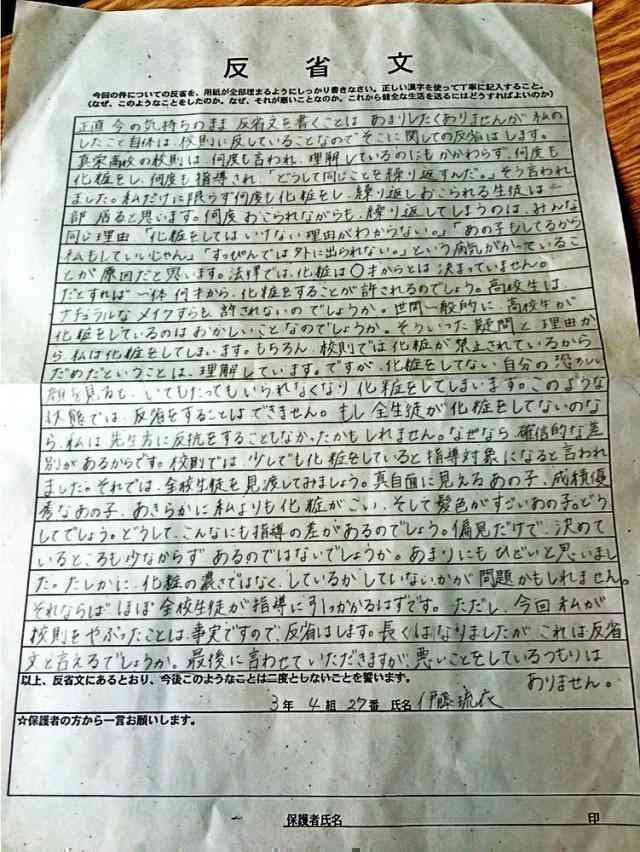 反省文
今回の件についての反省を、用紙が全部埋まるようにしっかり書きなさい。正しい漢字を使って丁寧に記入すること。
(なぜ、このようなことをしたのか。なぜ、それが悪いことなのか。これから健全な生活を送るにはどうすればよいのか)
正直今の気持ちのまま反省文を書くことは あまりしたくありませんが 私の
したこと自体は、校則に反していることなのでそこに関しての反省はします。
真栄高校の校則は 何度も言われ、理解しているのにもかかわらず、何度も
化粧をし、何度も指導され「どうして同じことを繰り返すんだ。」そう言われ
ました。私だけに限らず何度も化粧をし、繰り返しおこられる生徒は一
部居ると思います。何度おこられながらも、繰り返してしまうのは、みんな
同じ理由「化粧をしてはいけない理由がわからない。」「あの子もしてるから
私もしていいじゃん」「すっぴんでは外に出られない。」という病気がかっているこ
とが原因だと思います。法律では、化粧は〇才からとは 決まっていません。
だとすれば 一体 何才から、化粧をすることが許されるのでしょう。高校生は、
ナチュラルな メイクすらも、許されないの でしょうか。世間一般的に、高校生が
化粧をしているのは おかしいことなのでしょうか。そういった 疑問と 理由か
ら 私は化粧をしてしまいます。もちろん、校則では化粧が 禁止されているから
だめだということは、理解しています。ですが、化粧をしてない 自分の 恐ろしい
顔を見ると、いてもたってもいられなくなり 化粧をしてしまいます。このような
状態では、反省をすることは できません。もし 全生徒が 化粧をしてないのな
ら、私は 先生方に反抗をすることもなかったかもしれません。なぜなら、確信的な差
別が あるからです。校則では 少しでも 化粧をしていると 指導対象になると 言われ
ました。それでは、全校生徒を 見渡してみましょう。真面目に見えるあの子、成績優
秀なあの子、あきらかに私よりも 化粧がこい、そして髪色がすごいあの子。どう
してでしょう。どうして、こんなにも指導の差があるのでしょう。偏見だけで、決めて
いるところも少なからず あるのではないでしょうか。あまりにも ひどいと思いまし
た。たしかに、化粧の濃さではなく、しているか していないかが 問題かもしれません。
それならば ほぼ 全校生徒が 指導に 引っかかるはずです。ただし、今回 私が
校則をやぶったことは、事実ですので、反省はします。長くはなりましたが これは反省
文と言えるでしょうか。最後に言わせていただきますが、悪いことをしているつもりは
ありません。
以上、反省文にあるとおり、今後このようなことは二度としないことを誓います。
3年 4組 27番 氏名 伊藤琉衣
☆保護者の方から一言お願いします。
保護者氏名 印